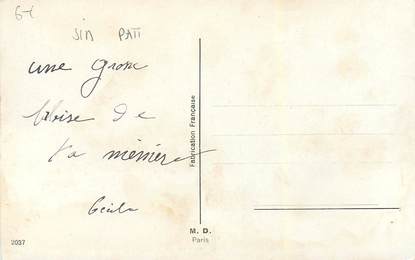 6€
SIN PATI
une grosse
bise de
ta mémère
Cécile
Fabrication Française
M. D.
Paris
2037